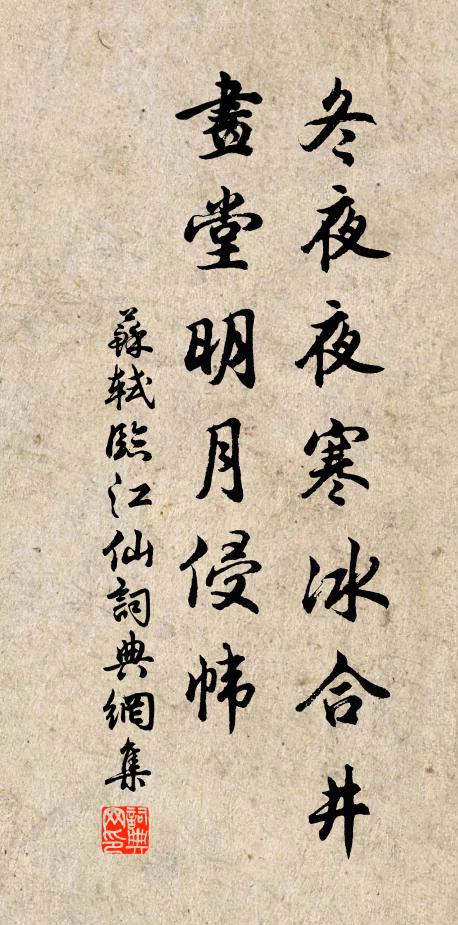 冬夜夜寒冰合井
畫堂明月侵幃
蘇軾臨江仙詞典網集
詞典網印